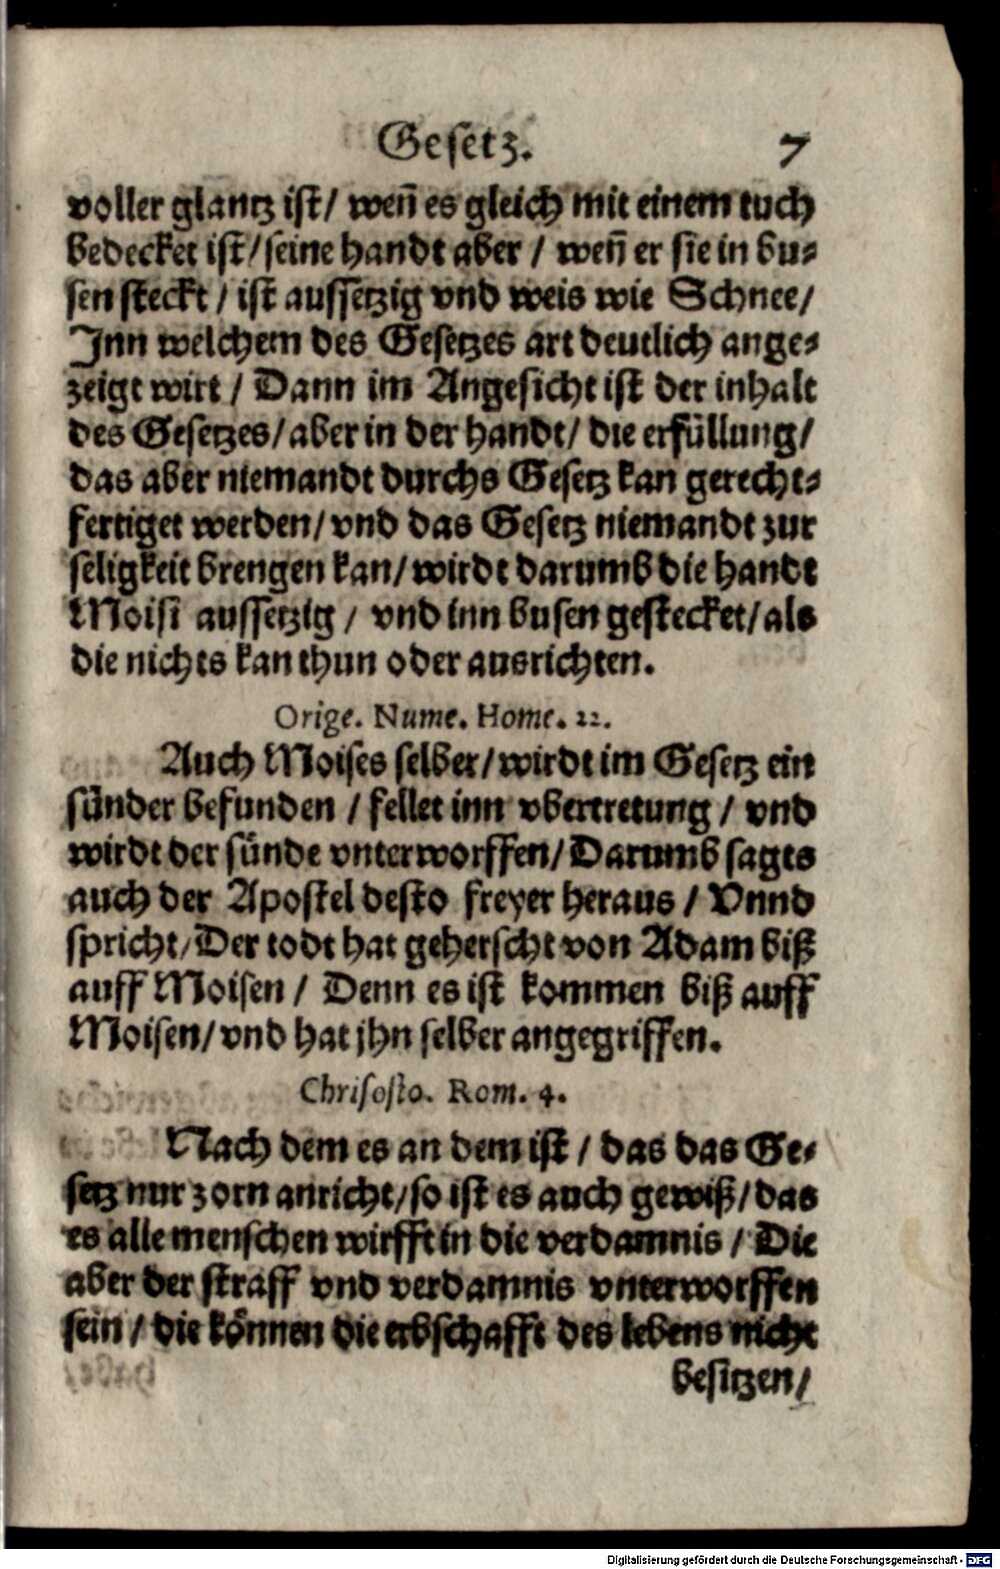 Gesetz. 7
voller glantz ist/ weñ es gleich mit einem tuch
bedecket ist/ seine handt aber / weñ er sie in bu-
sen steckt / ist aussetzig vnd weis wie Schnee/
Jnn welchem des Gesetzes art deutlich ange-
zeigt wirt / Dann im Angesicht ist der inhalt
des Gesetzes/ aber in der handt/ die erfüllung/
das aber niemandt durchs Gesetz kan gerecht-
fertiget werden/ vnd das Gesetz niemandt zur
seligkeit brengen kan/ wirdt darumb die handt
Moisi aussetzig / vnd inn busen gestecket/ als
die nichts kan thun oder ausrichten.
Orige. Nume. Home. 22.
Auch Moises selber/ wirdt im Gesetz ein
sünder befunden / fellet inn vbertretung / vnd
wirdt der sünde vnterworffen/ Darumb sagts
auch der Apostel desto freyer heraus / Vnnd
spricht/ Der todt hat geherscht von Adam biß
auff Moisen / Denn es ist kommen biß auff
Moisen/ vnd hat jhn selber angegriffen.
Chrisosto. Rom. 4.
Nach dem es an dem ist / das das Ge-
setz nur zorn anricht/ so ist es auch gewiß/ das
es alle menschen wirfft in die verdamnis / Die
aber der straff vnd verdamnis vnterworffen
sein / die können die erbschafft des lebens nicht
besitzen/
Digitalisierung gefördert durch die Deutsche Forschungsgemeinschaft - DFG